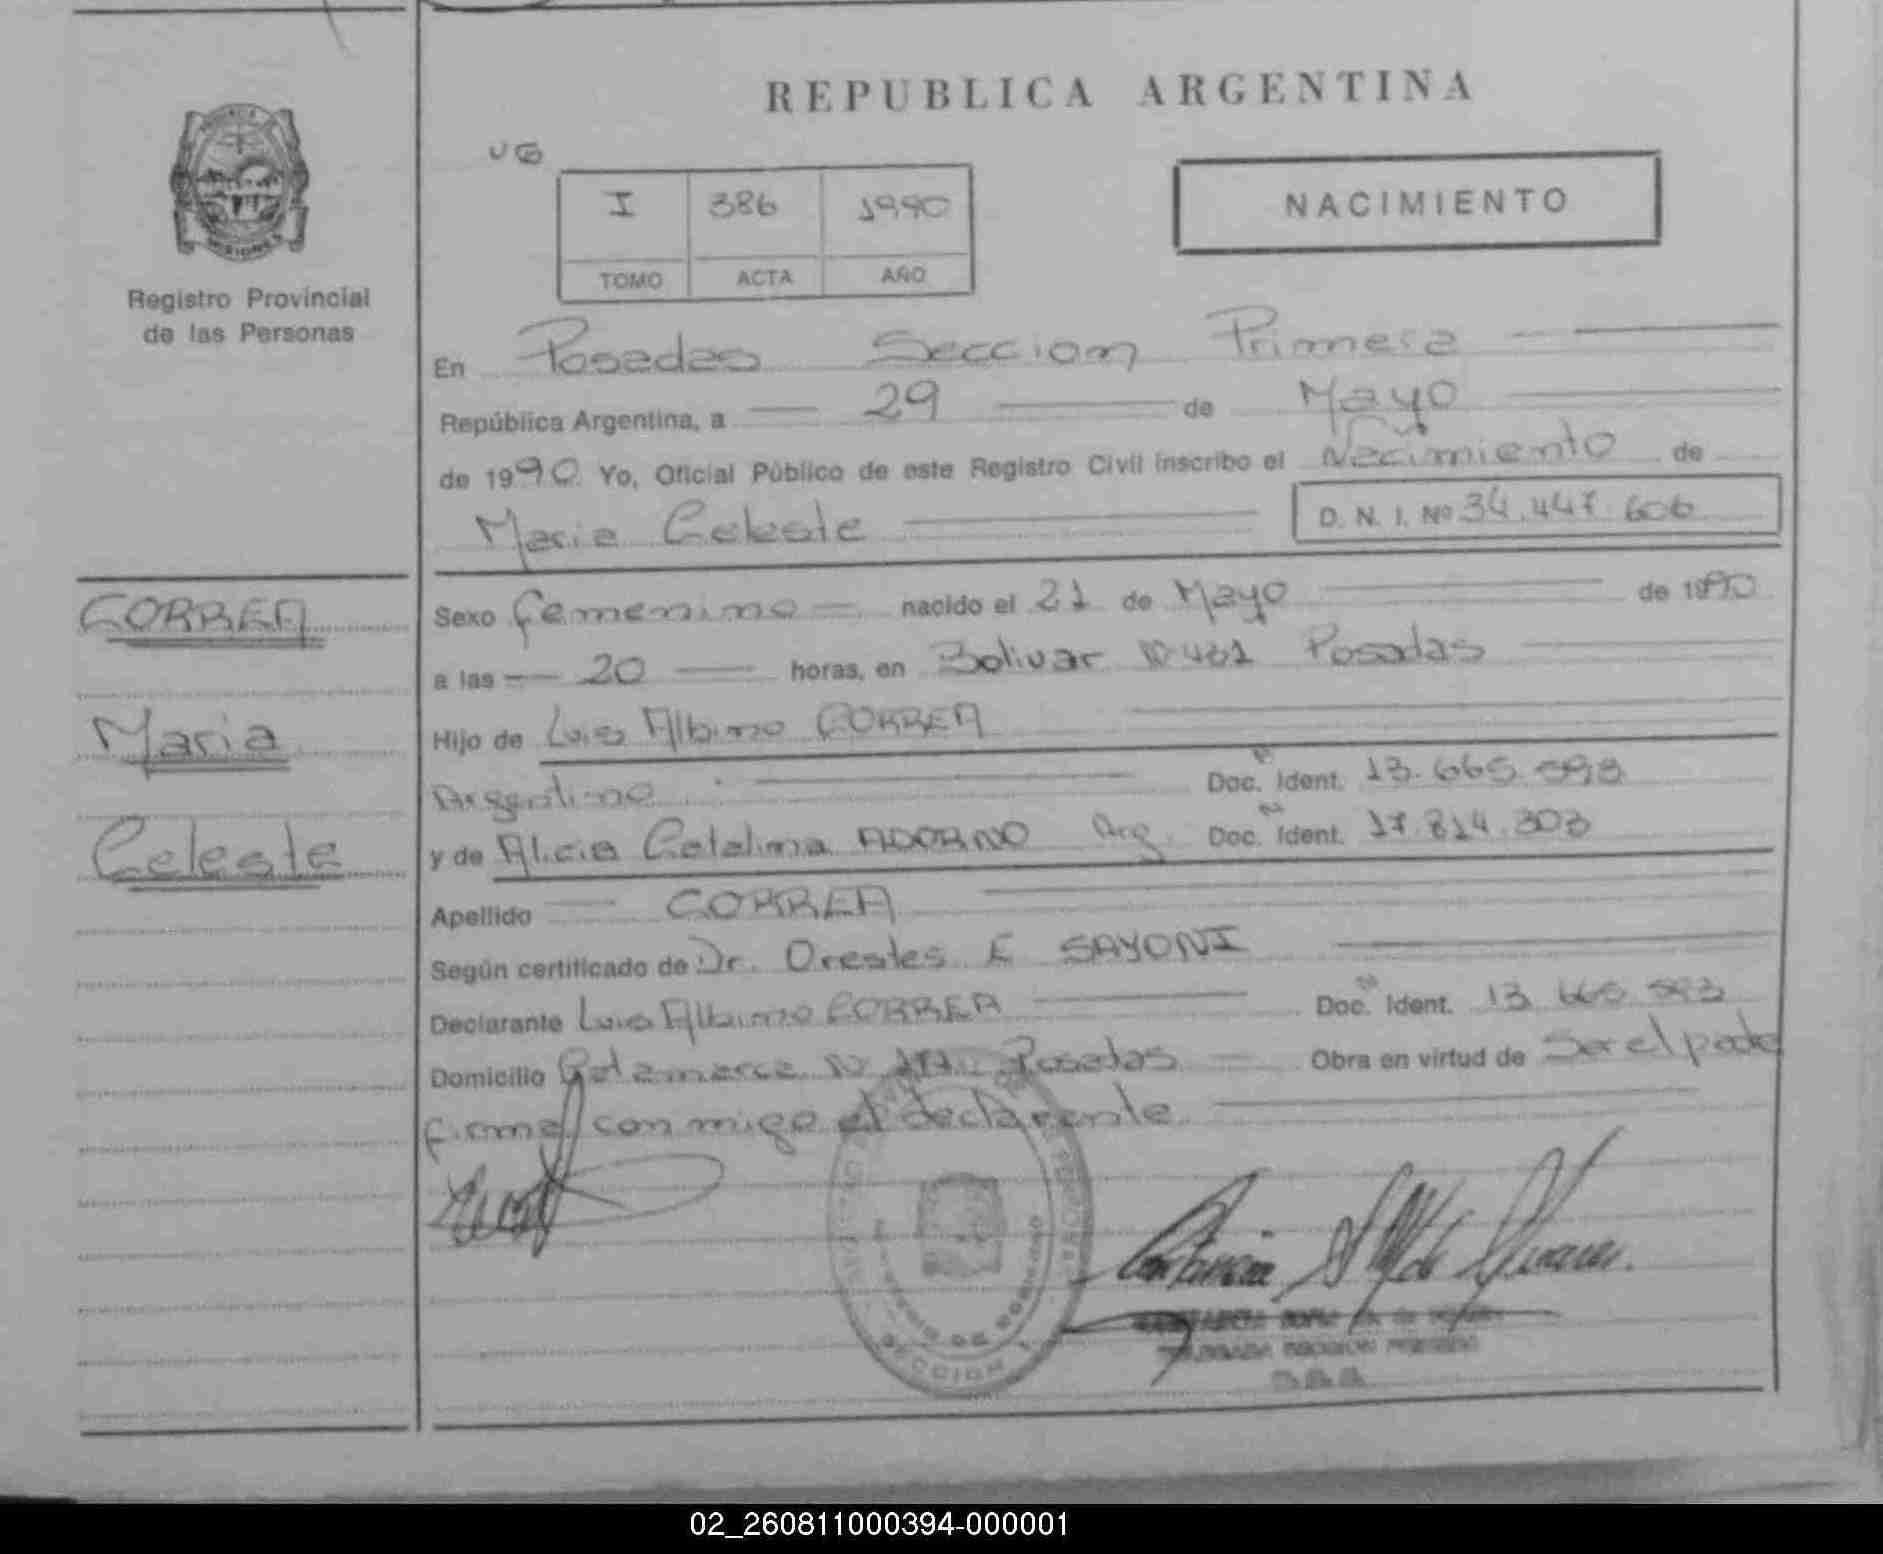 REPUBLICA ARGENTINA
UG
I 386 1990
TOMO ACTA AÑO
NACIMIENTO
MISIONES
Registro Provincial
de las Personas
En Posadas Seccion Primera
República Argentina, a 29 de Mayo
de 1990 Yo, Oficial Público de este Registro Civil inscribo el Nacimiento de
Maria Celeste D. N. I. Nº 34.447.606
CORREA
Maria
Celeste
Sexo femenino nacido el 21 de Mayo de 1990
a las 20 horas, en Bolivar Nº 431 Posadas
Hijo de Luis Albino CORREA
Argentino Doc. Ident. 13.665.593
y de Alicia Catalina ADORNO Arg. Doc. Ident. 17.814.303
Apellido CORREA
Según certificado de Dr. Orestes E SAYONI
Declarante Luis Albino CORREA Doc. Ident. 13 665 593
Domicilio Catamarca Nº Posadas Obra en virtud de Ser el padre
firma con migo el declarante
SECCION
02_260811000394-000001